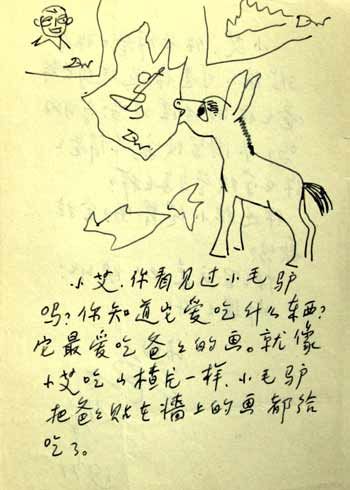 DW
DW
DW
小艾，你看见过小毛驴
吗？你知道它爱吃什么东西？
它最爱吃爸爸的画。就像
小艾吃山楂片一样，小毛驴
把爸爸贴在墙上的画都给
吃了。